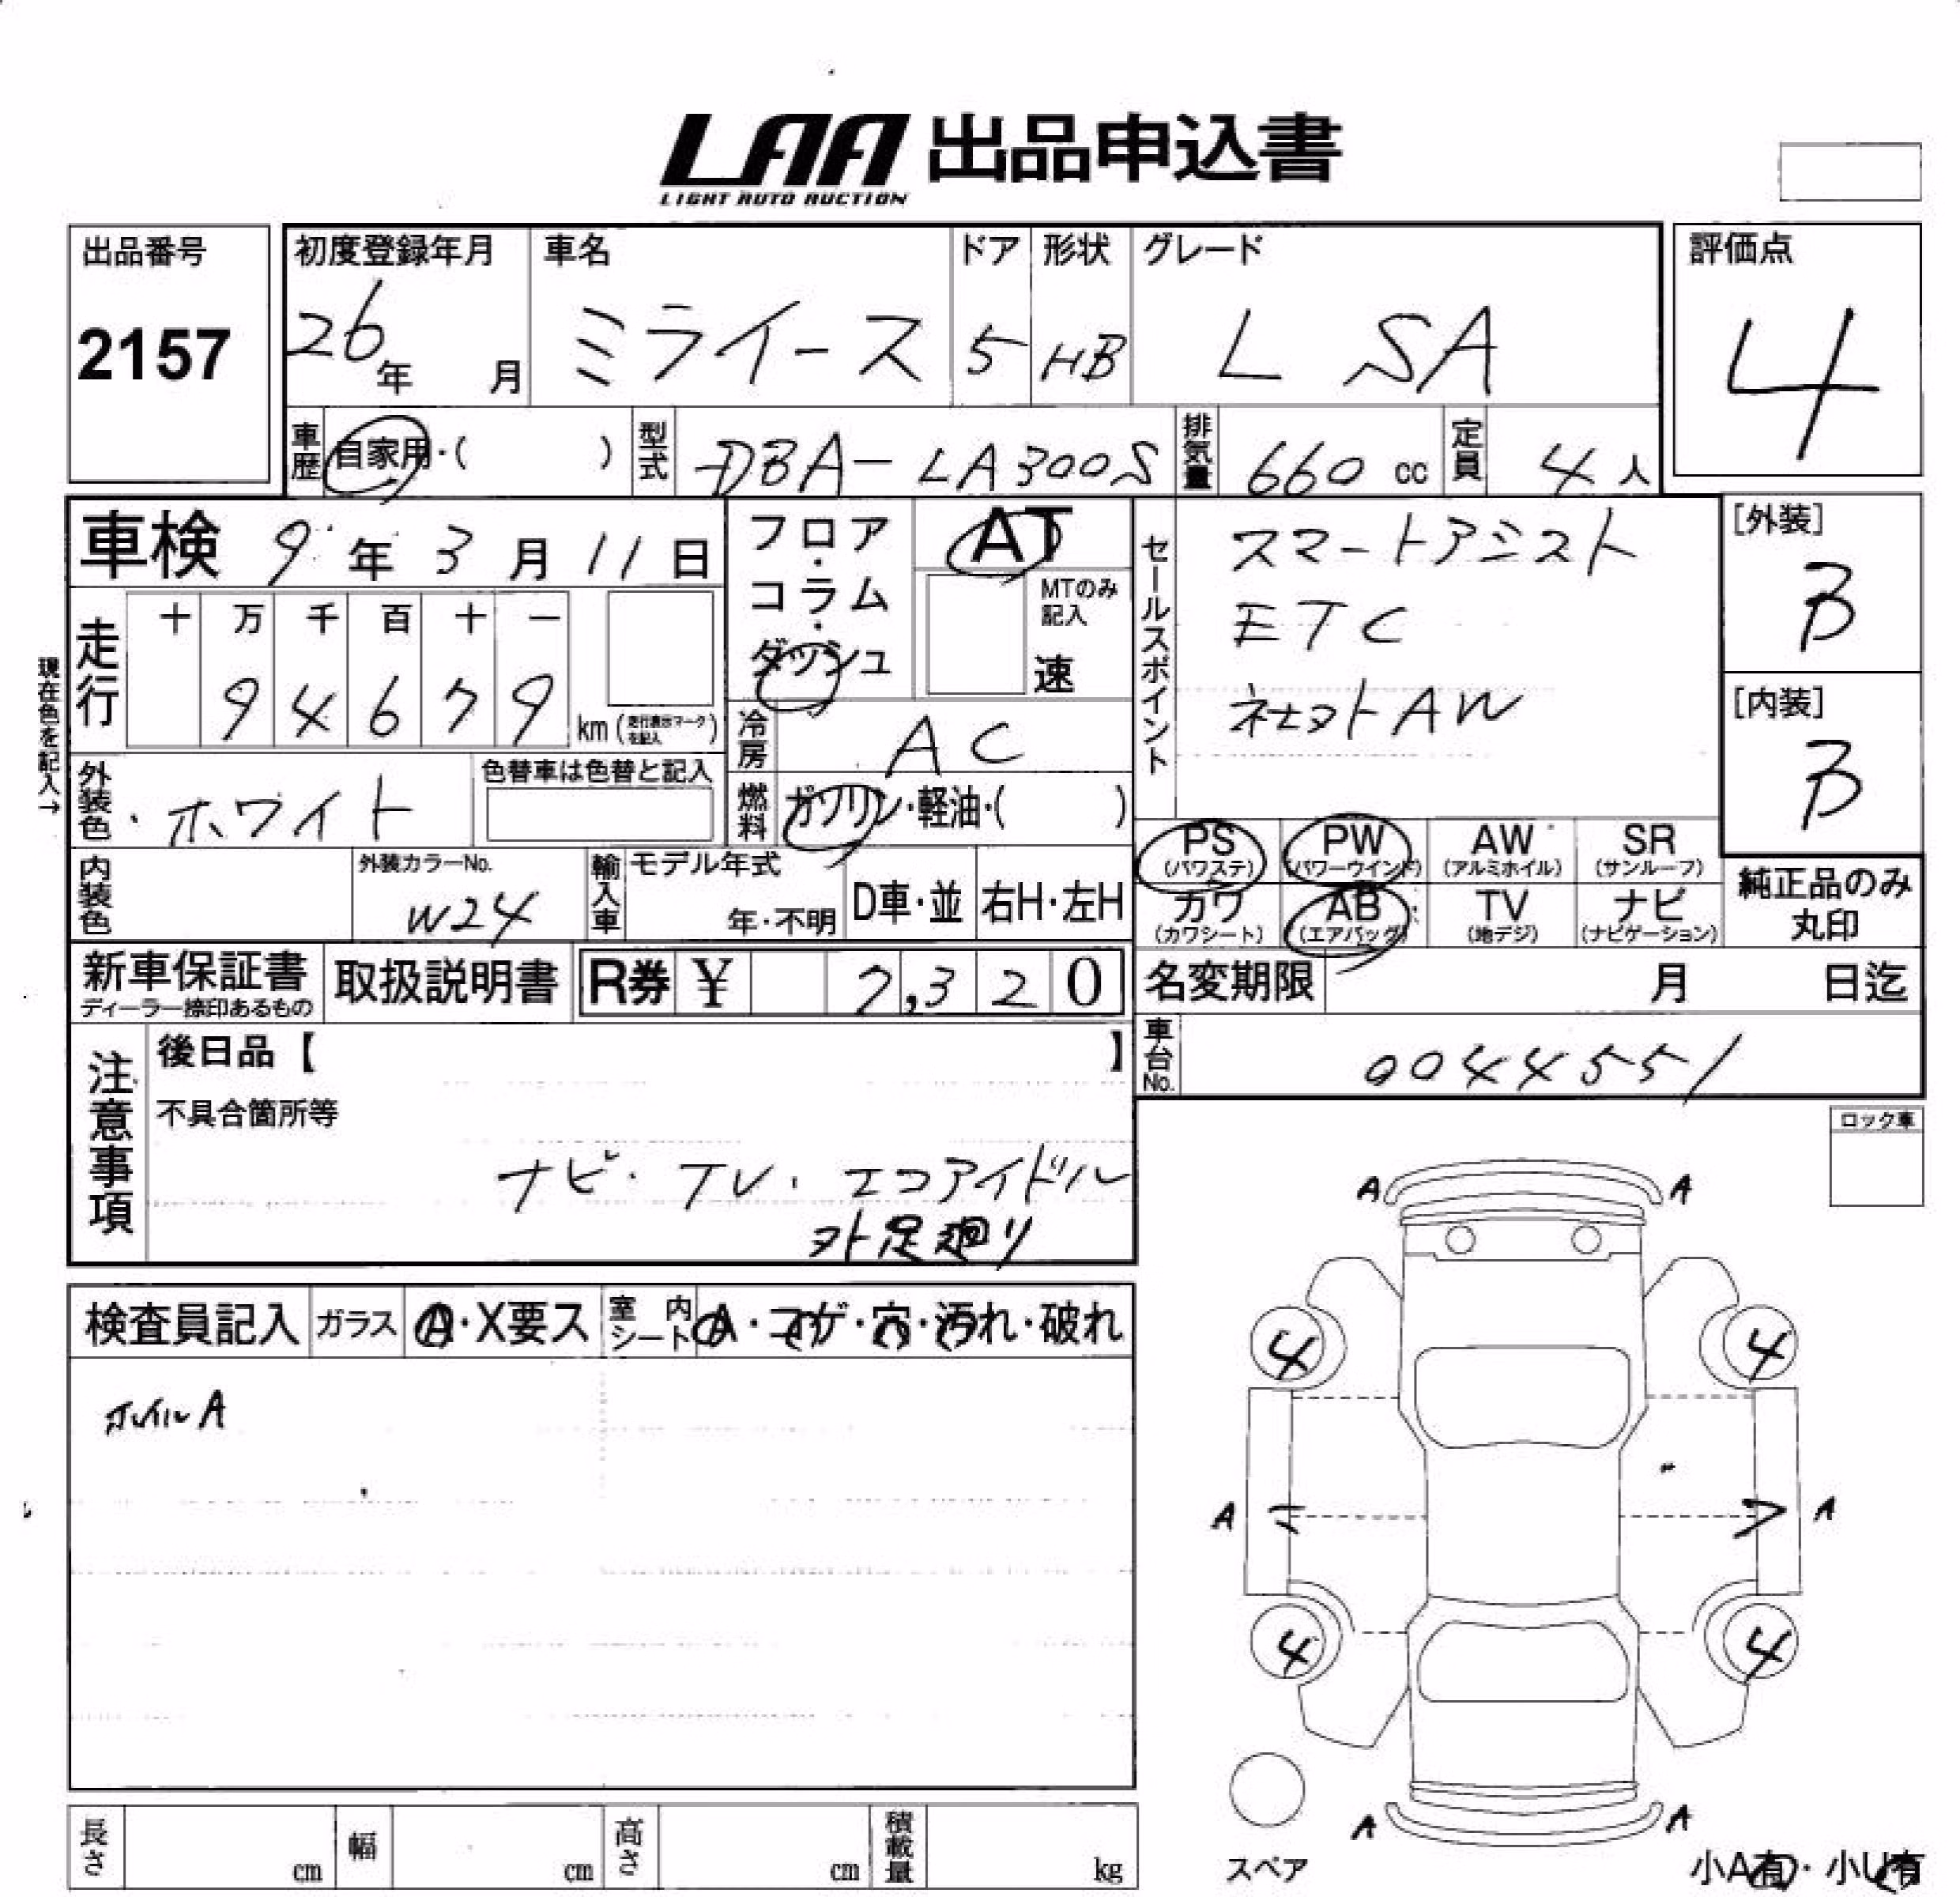 LAA 出品申込書
LIGHT AUTO AUCTION
出品番号
2157
初度登録年月
26年 月
車名
ミライース
ドア
5
形状
HB
グレード
L SA
評価点
4
車歴 自家用・( )
型式 DBA-LA300S
排気量 660 cc
定員 4人
車検 9年 3月 11日
フロア・コラム・ダッシュ
AT
MTのみ記入
速
セールスポイント
スマートアシスト
ETC
社外AW
[外装]
B
[内装]
B
現在色を記入→
走行
十 万 千 百 十 一
9 4 6 7 9
km (走行表示マークを記入)
冷房 AC
外装色 ・ホワイト
色替車は色替と記入
燃料 ガソリン・軽油・( )
PS (パワステ)
PW (パワーウインド)
AW (アルミホイル)
SR (サンルーフ)
カワ (カワシート)
AB (エアバッグ)
TV (地デジ)
ナビ (ナビゲーション)
純正品のみ
丸印
内装色
外装カラーNo.
W24
輸入車
モデル年式
年・不明
D車・並
右H・左H
新車保証書
ディーラー捺印あるもの
取扱説明書
R券 ¥ 7,320
名変期限 月 日迄
車台No. 0044551
注意事項
後日品【 】
不具合箇所等
ナビ・TV・エコアイドル
外足廻り
ロック車
検査員記入
ガラス A・X要ス
室内シート A・コゲ・穴・汚れ・破れ
ホイルA
A A
4 4
A A
4 4
A A
スペア
小A有・小U有
長さ cm
幅 cm
高さ cm
積載量 kg